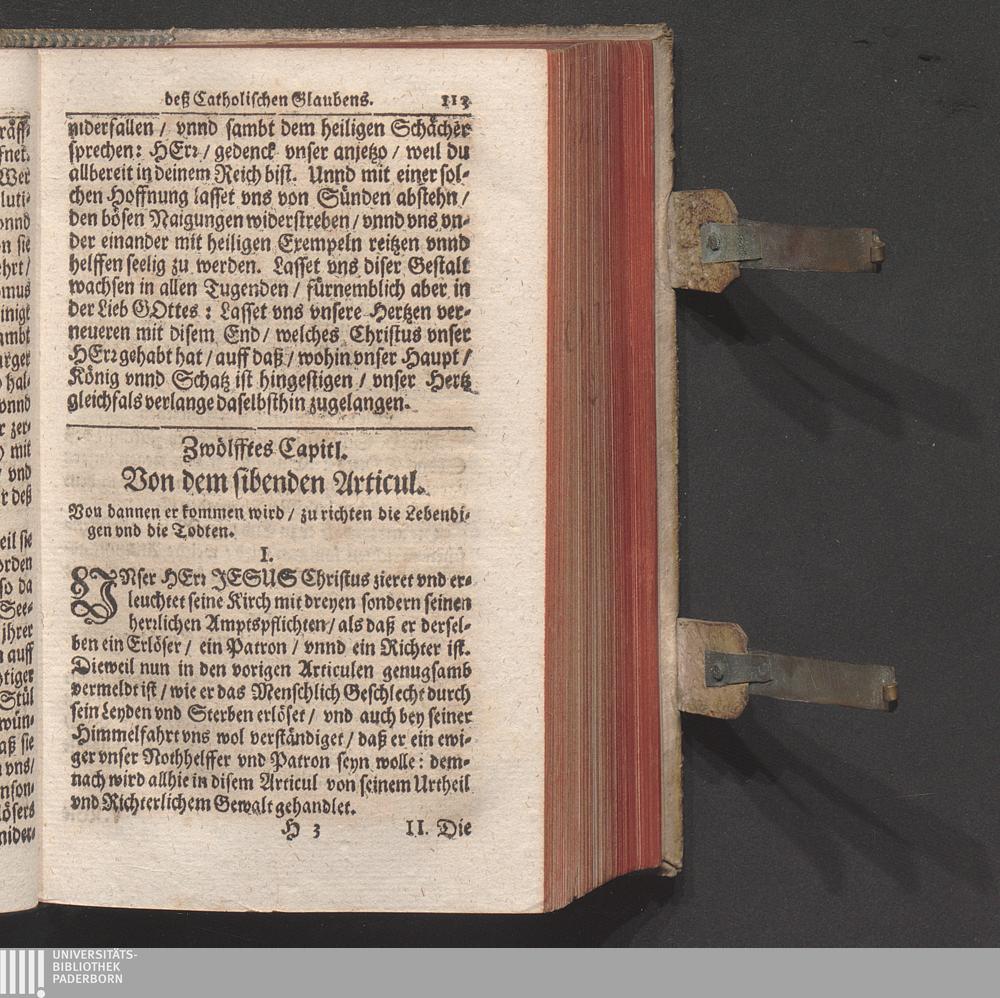 deß Catholischen Glaubens. 113
niderfallen / vnnd sambt dem heiligen Schächer
sprechen: HErr / gedenck vnser anjetzo / weil du
allbereit in deinem Reich bist. Unnd mit einer sol-
chen Hoffnung lasset vns von Sünden abstehn /
den bösen Naigungen widerstreben / vnnd vns vn-
der einander mit heiligen Exempeln reitzen vnnd
helffen seelig zu werden. Lasset vns diser Gestalt
wachsen in allen Tugenden / fürnemblich aber in
der Lieb GOttes: Lasset vns vnsere Hertzen ver-
neueren mit disem End / welches Christus vnser
HErr gehabt hat / auff daß / wohin vnser Haupt /
König vnnd Schatz ist hingestigen / vnser Hertz
gleichfals verlange daselbsthin zugelangen.
Zwölfftes Capitl.
Von dem sibenden Articul.
Von dannen er kommen wird / zu richten die Lebendi-
gen vnd die Todten.
I.
UNser HErr JESUS Christus zieret vnd er-
leuchtet seine Kirch mit dreyen sondern seinen
herrlichen Amptspflichten / als daß er dersel-
ben ein Erlöser / ein Patron / vnnd ein Richter ist.
Dieweil nun in den vorigen Articulen genugsamb
vermeldt ist / wie er das Menschlich Geschlecht durch
sein Leyden vnd Sterben erlöset / vnd auch bey seiner
Himmelfahrt vns wol verständiget / daß er ein ewi-
ger vnser Nothhelffer vnd Patron seyn wolle: dem-
nach wird allhie in disem Articul von seinem Urtheil
vnd Richterlichem Gewalt gehandlet.
H 3 II. Die
UNIVERSITÄTS-
BIBLIOTHEK
PADERBORN